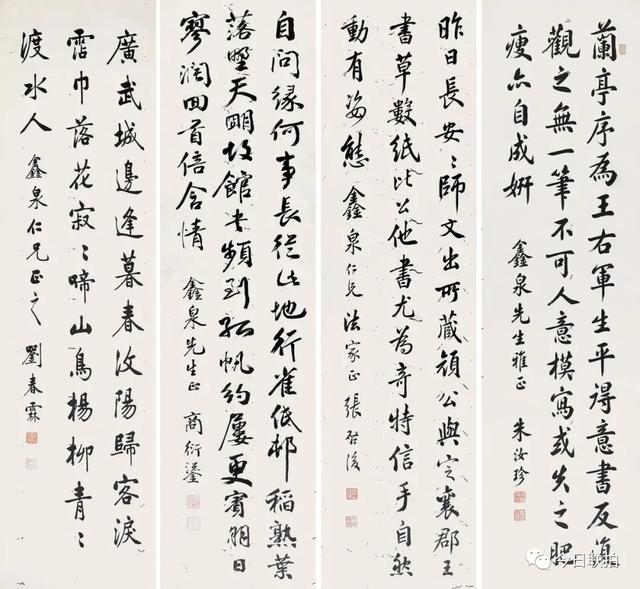 蘭亭序為王右軍生平得意書反復
觀之無一筆不可人意模寫或失之肥
瘦亦自成妍
鑫泉先生雅正 朱汝珍
昨日長安〻師文出所藏顏公與定襄郡王
書草數紙比公他書尤為奇特信手自然
動有姿態
鑫泉仁兄法家正 張啓後
自問緣何事長從此地行雀低邨稻熟葉
落野天明故館頻到孤帆約屢更賓朋日
寥闊回首倍含情
鑫泉先生正 商衍鎏
廣武城邊逢暮春汶陽歸客淚
霑巾落花寂〻啼山鳥楊柳青〻
渡水人
鑫泉仁兄正之 劉春霖
今日联拍